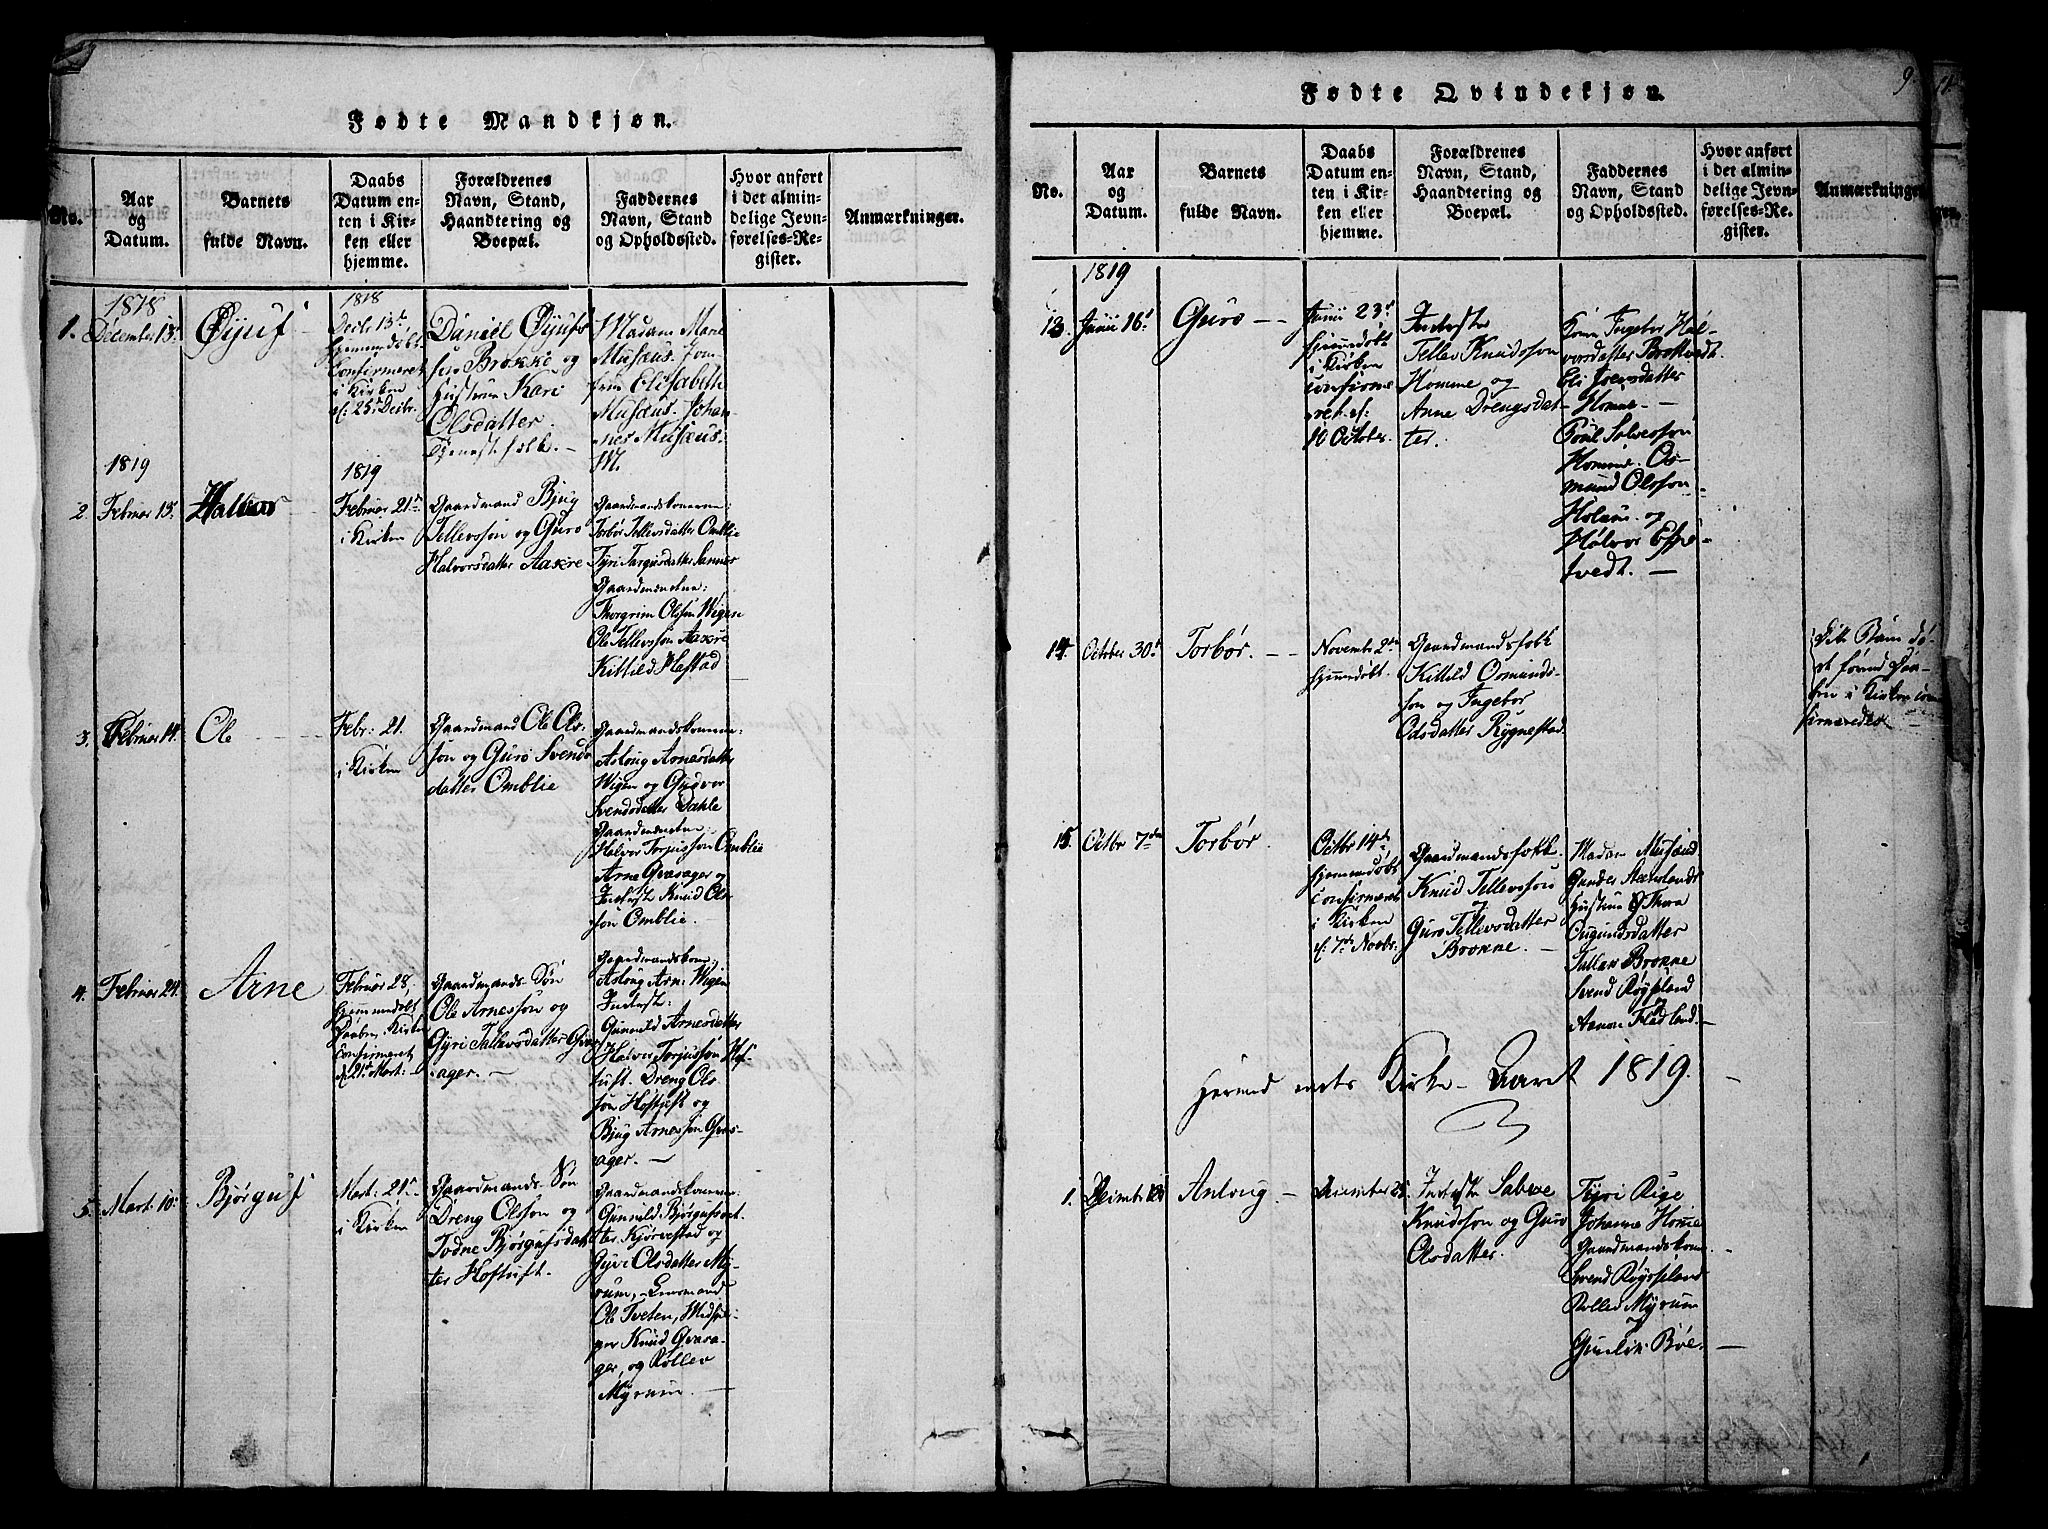 Fødte Mandkjøn.
No.
Aar
og
Datum.
Barnets
fulde Navn.
Daabs
Datum en-
ten i Kir-
ken eller
hjemme.
Forældrenes
Navn, Stand,
Haandtering og
Boepæl.
Faddernes
Navn, Stand
og Opholdssted.
Hvor anført
i det almin-
delige Jevn-
førelses-Re-
gister.
Anmærkninger.
1818
1.
December 13.
Øyuf
1818
Decbr 13de
hjemmedøbt
Confirmeret
i Kirken
d. 25de Decbr.
Daniel Øyufs-
søn Brokke og
Hustrue Kari
Olsdatter.
Tjenestfolk. –
Madam Marie
Musæus. Jom-
frue Elisabeth
Musæus. Johan-
nes Musæus.
M.
1819
2.
Februar 13.
Halvor
1819
Februar 21de
i Kirken
Gaardmand Bjug
Tellevssøn og Guro
Halvorsdatter Aakre
Gaardmandskonerne:
Torbør Tellevsdatter Omblie
Tyri Targusdatter Sannes
Gaardmændene:
Thorgrim Olssøn Wigen
Ole Tellevssøn Aakre
Kittild Hastad
3.
Februar 14.
Ole
Febr: 21.
i Kirken
Gaardmand Ole Ols-
søn og Guro Svends-
datter Omblie
Gaardmandskonerne:
Aslong Arnesdatter
Wigen og Gudvor
Svendsdatter Dahle
Gaardmændene
Halvor Torjussøn Omblie
Arne Qvasager og
Inderst Knud Ols-
søn Omblie.
4.
Februar 24.
Arne
Februar 28,
hjemmedøbt
Daaben i Kirken
Confirmeret
d. 21de Mart: –
Gaardmands Søn
Ole Arnessøn og
Gyri Tallevsdatter Qvas-
ager. –
Gaardmandskone,
Aslong Arn: Wigen
Inderst:
Gunnild Arnesdatter
Halvor Torjussøn Hof-
tuft. Dreng Ols-
søn Hoftuft og
Bjug Arnessøn Qvas-
ager. –
5.
Mart: 10.
Bjørguf
Mart: 21de
i Kirken
Gaardmands Søn
Dreng Olssøn og
Todne Bjørgufsdat-
ter Hoftuft.
Gaardmandskonerne:
Gunnild Bjørgufsdat-
ter Kjørvestad og
Gyri Olsdatter My-
rum, – Lensmand
Ole Tveten, Medhjel-
per Knud Qvasa-
ger, og Rollev
Myrum. –
9
Fødte Qvindekjøn.
No.
Aar
og
Datum.
Barnets
fulde Navn.
Daabs
Datum en-
ten i Kir-
ken eller
hjemme.
Forældrenes
Navn, Stand,
Haandtering og
Boepæl.
Faddernes
Navn, Stand
og Opholdssted.
Hvor anført
i det almin-
delige Jevn-
førelses-Re-
gister.
Anmærkninger
1819
13.
Junii 16de
Guro –
Junii 23de
hjemmedøbt
i Kirken
confirme-
ret d:
10 October.
Inderste
Tellev Knudssøn
Homme og
Anne Drengsdat-
ter.
Kone Ingebor Hal-
vorsdatter Brottvedt.
Eli Iversdatter
Homme –
Poul Salvessøn
Homme. Os-
mund Olssøn
Holum. og
Halvor Espe-
tvedt. –
14.
October 30te
Torbør. –
Novembr 2den
hjemmedøbt.
Gaardmandsfolk
Kittild Osmunds-
søn og Ingebor
Odsdatter Rygnestad
Dette Barn dø-
de førend Daa-
ben i Kirken con-
firmeredes
15.
Octbr 7de
Torbør.
Octbr 14de
hjemmedøbt
Confirmeret
i Kirken
d. 7de Novbr.
Gaardmandsfolk.
Knud Tellevssøn
og
Guro Tellevsdatter
Brokke. –
Madam Musæus
Gunder
Hustrue Thora
Ougundsdatter
Tallev Brokke
Svend Røyseland
og
Aanon Fladland. –
Herund Kirke Aaret 1819. –
1.
Aslong –
December 25.
Inderste Salve
Knudssøn og Guro
Olsdatter.
Tyri Rige
Johanne Homme
Gaardmandskone.
Svend Røyseland
Rollev Myrum
og
Gunlek Bøe. –